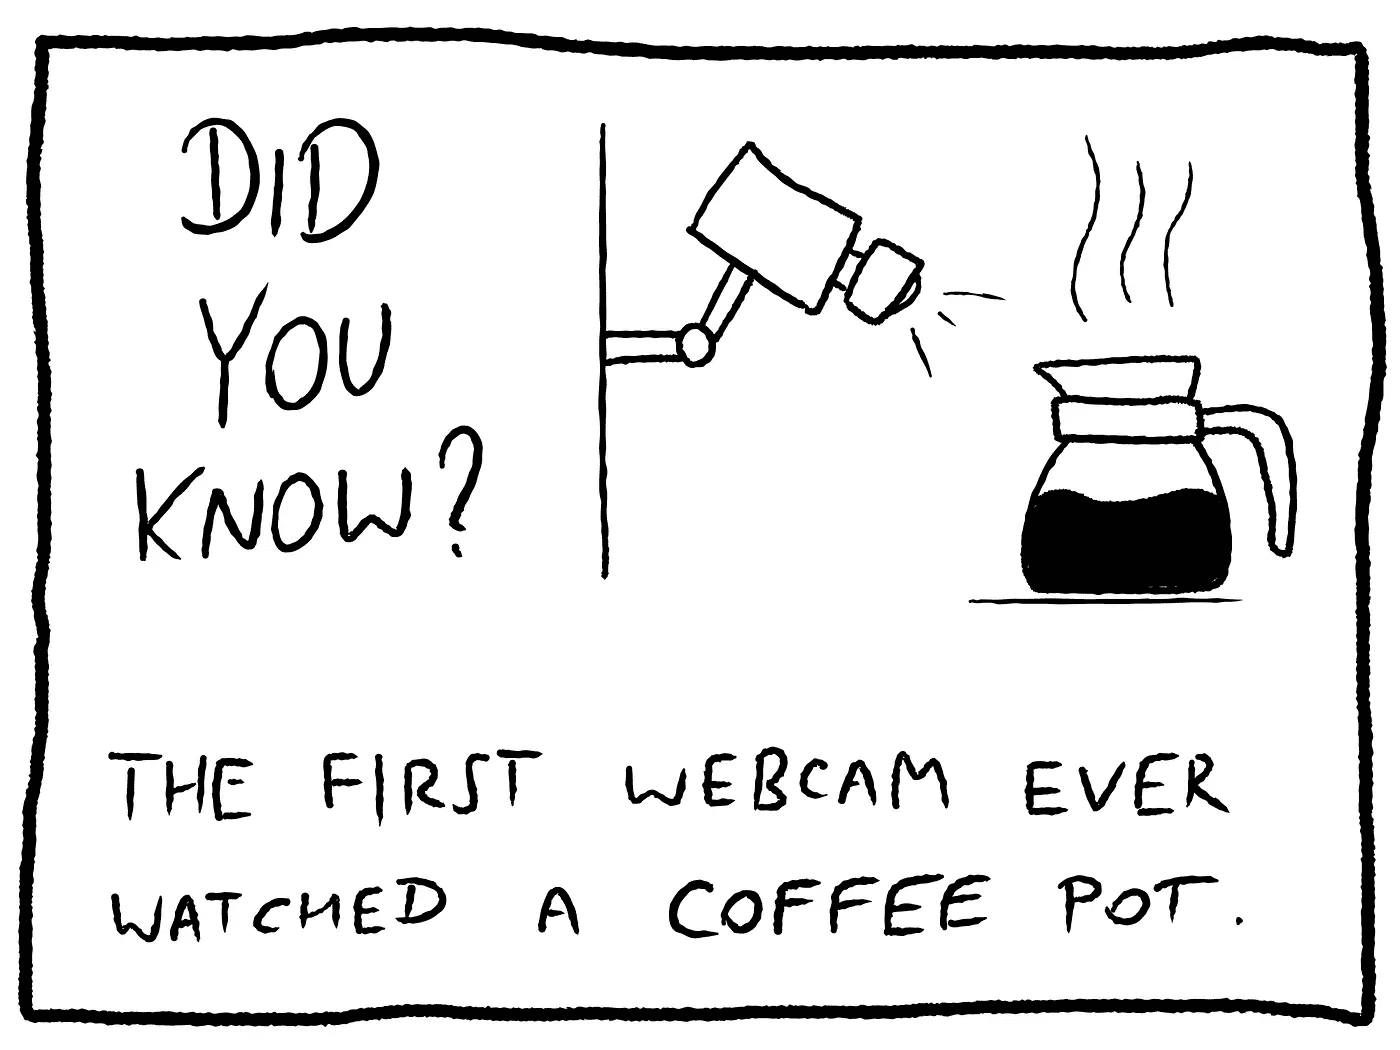 DID
YOU
KNOW?
THE FIRST WEBCAM EVER
WATCHED A COFFEE POT.